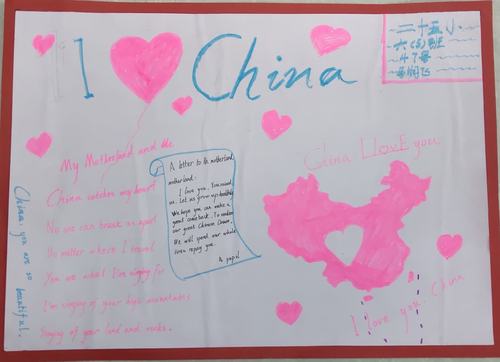 I China
二十五小
六(5)班
47号
My Motherland and the
China catches my heart
No we can break us apart
No matter where I travel
You are what I'm singing for
I'm singing of your high mountains
Singing of your land and rocks.
China, you are so beautiful.
A letter to the motherland
motherland:
I love you. You raised
us. Let us grow up
We hope you can make a
great comeback. To realize
our great Chinese Dream.
We will spend our whole
lives repay you.
A pupil
China I LovE you
I love you. China